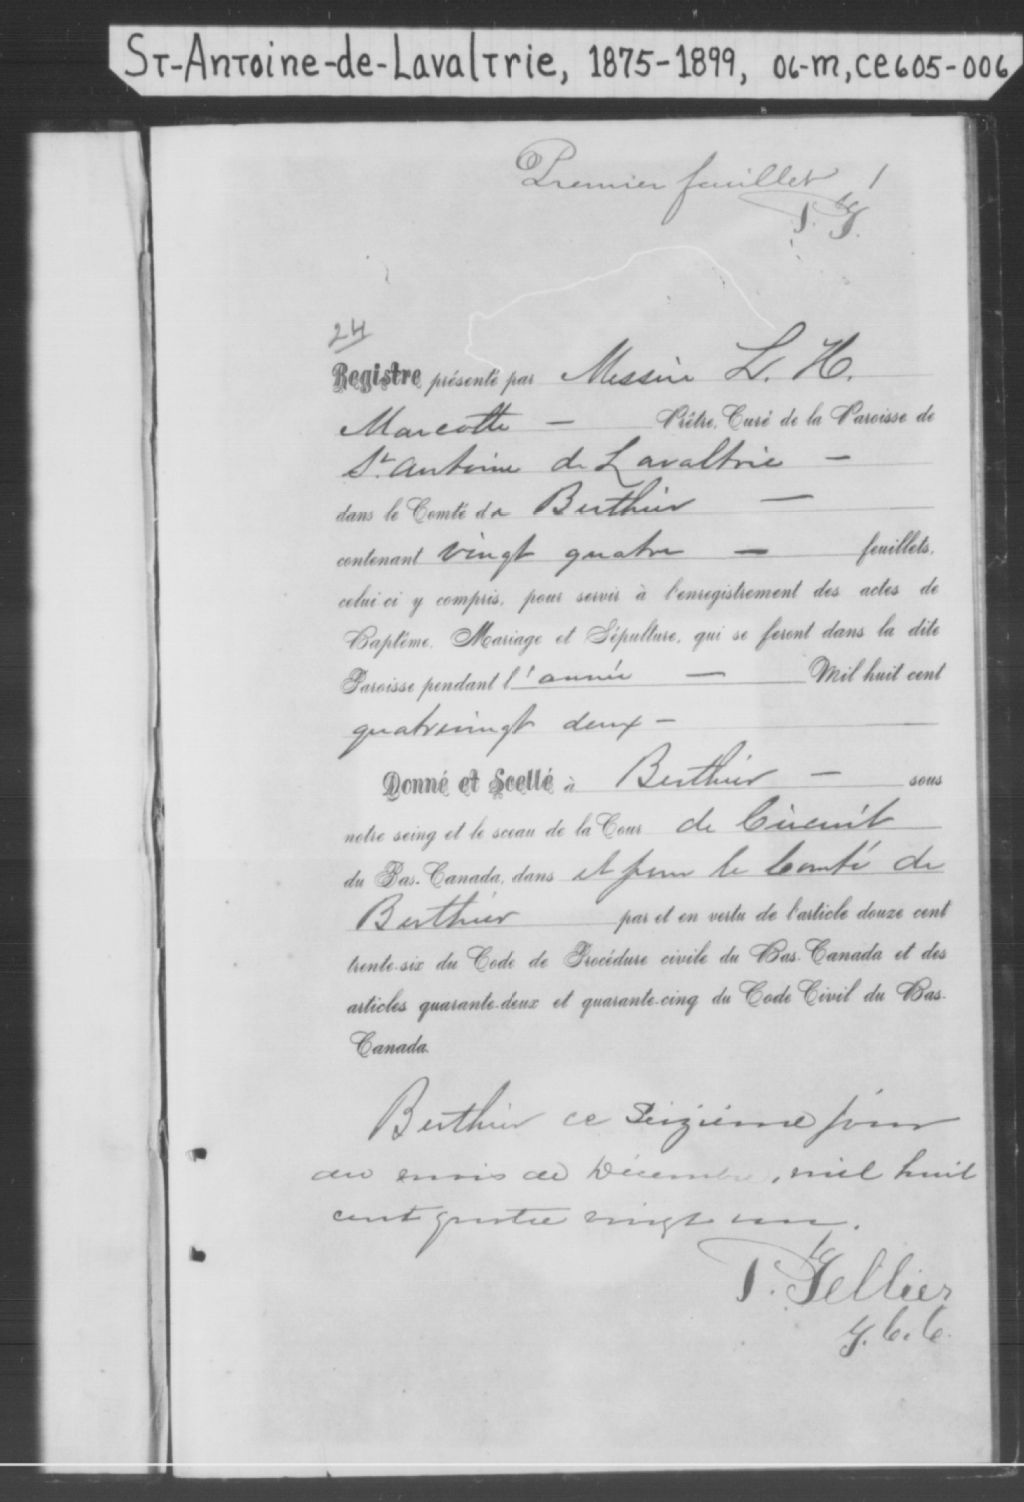 ST-Antoine-de-Lavaltrie, 1875-1899, 06-m, CE605-006
Premier feuillet 1
24
Registre présenté par Messire L. H.
Marcotte — Prêtre, Curé de la Paroisse de
St. Antoine de Lavaltrie —
dans le Comté de Berthier —
contenant vingt quatre — feuillets,
celui ci y compris, pour servir à l'enregistrement des actes de
Baptême, Mariage et Sépulture, qui se feront dans la dite
Paroisse pendant l'année — Mil huit cent
quatrevingt deux —
Donné et Scellé à Berthier — sous
notre seing et le sceau de la Cour de Circuit
du Bas-Canada, dans et pour le Comté de
Berthier par et en vertu de l'article douze cent
trente-six du Code de Procédure civile du Bas-Canada et des
articles quarante-deux et quarante-cinq du Code Civil du Bas-
Canada.
Berthier ce Seizième jour
du mois de Décembre, mil huit
cent quatre vingt un.
Tellier